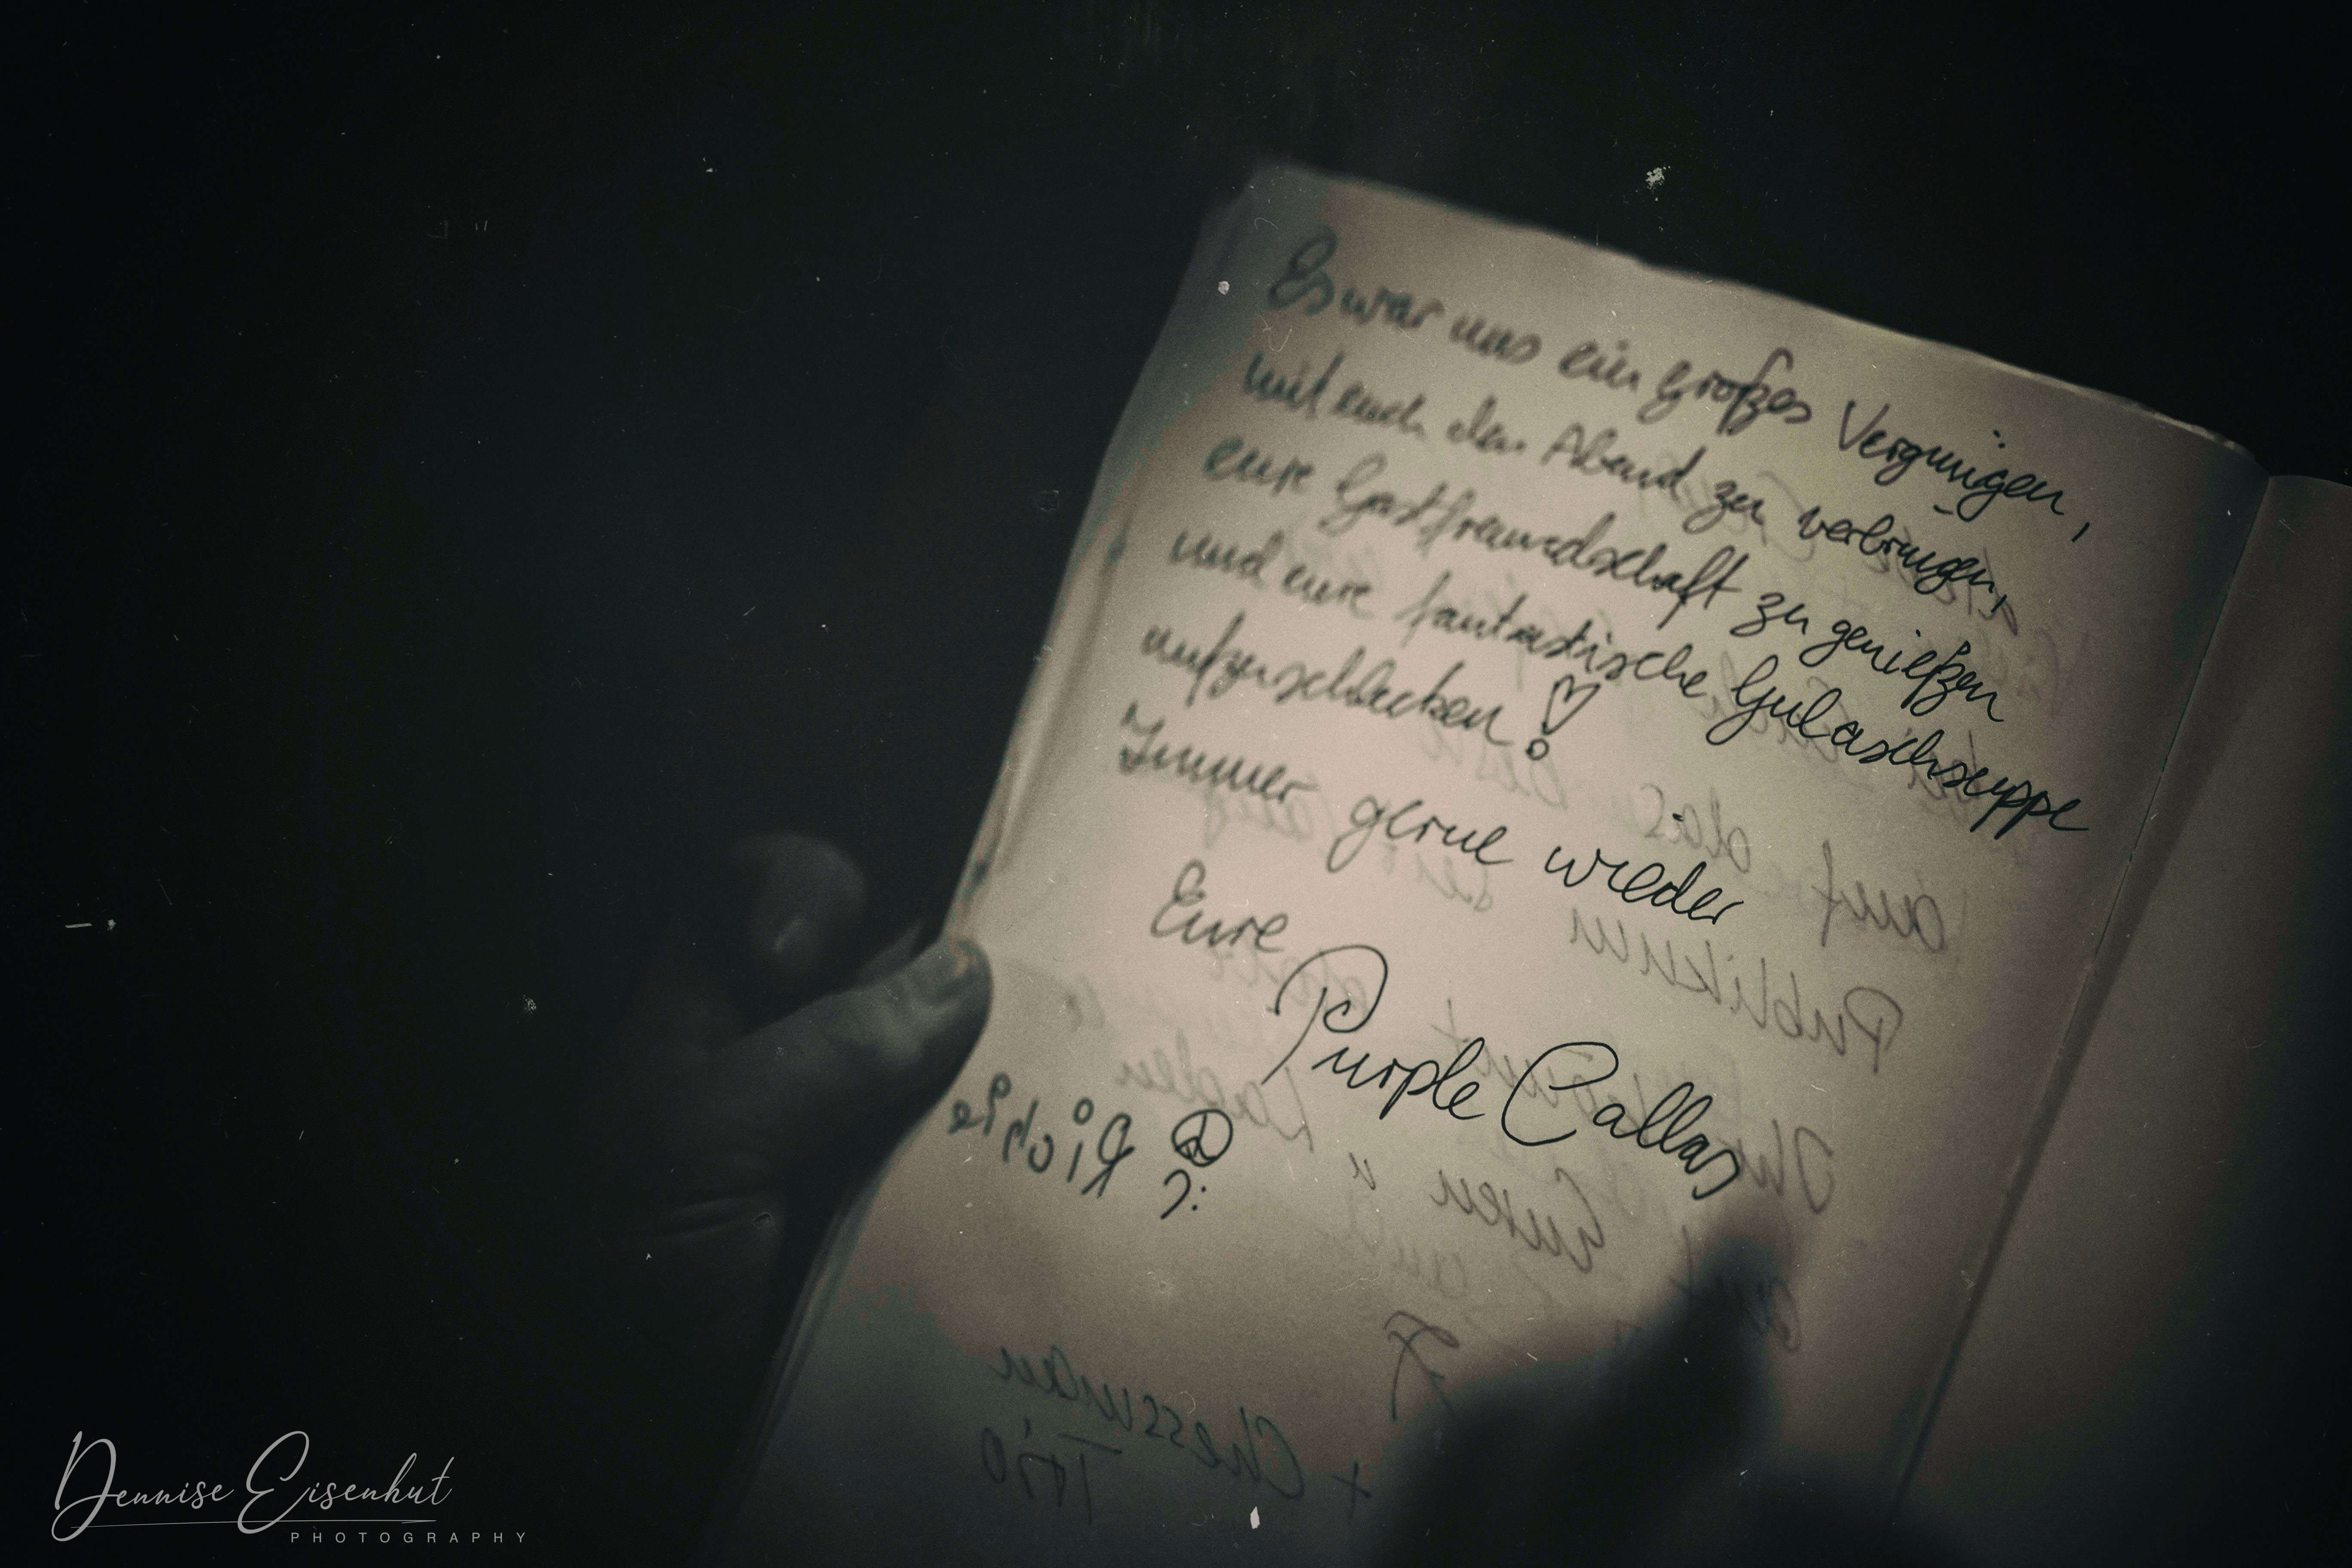 Es war uns ein großes Vergnügen,
mit euch den Abend zu verbringen,
eure Gastfreundschaft zu genießen
und eure fantastische Gulaschsuppe
aufzuschlecken!
Immer gerne wieder
Eure
Purple Callas
auf das
Publikum
Laden
Guten
+ Chessman
Trio
Dennise Eisenhut
PHOTOGRAPHY